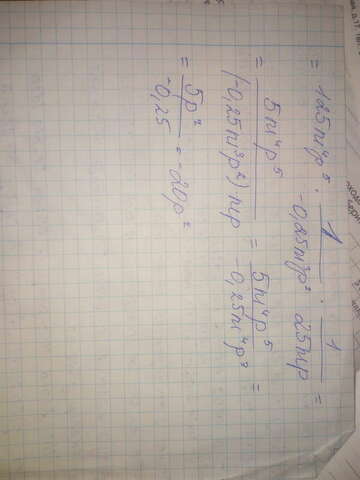 = 125m⁴p⁵ · 1/(-0,25m³p²) · 1/(25mp) =
= 5m⁴p⁵/((-0,25m³p²)mp) = 5m⁴p⁵/(-0,25m⁴p³) =
= 5p²/(-0,25) = -20p²